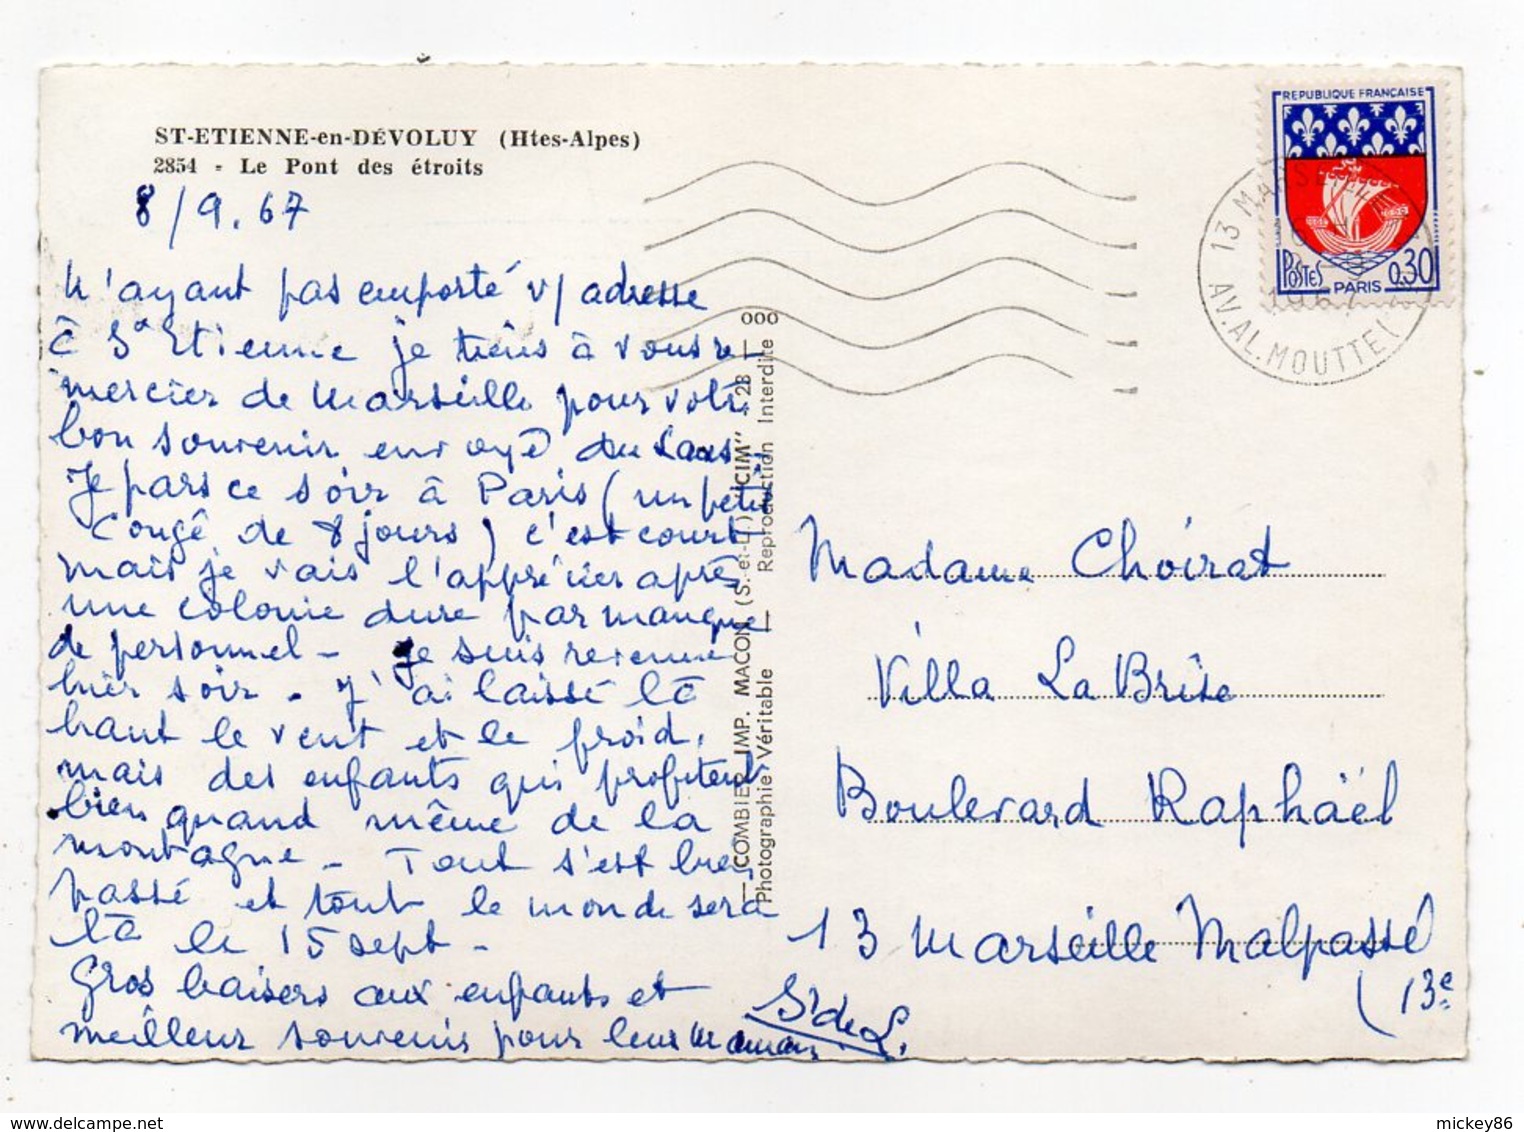 ST-ETIENNE-en-DÉVOLUY (Htes-Alpes)
2854 - Le Pont des étroits
8/9.67
N'ayant pas emporté v/ adresse
à St Etienne je tiens à vous re-
mercier de Marseille pour votre
bon souvenir envoyé du
Je pars ce soir à Paris (un petit
congé de 8 jours) c'est court
mais je vais l'apprécier après
une colonie dure par manque
de personnel - Je suis revenue
hier soir - J'ai laissé là
haut le vent et le froid,
mais des enfants qui profitent
bien quand même de la
montagne - Tout s'est bien
passé et tout le monde sera
là le 15 sept -
Gros baisers aux enfants et
meilleur souvenir pour leur maman.
Sr de L.
COMBIER IMP. MACON (S.-et-L.) "CIM" - 2B
Photographie Véritable — Reproduction Interdite
REPUBLIQUE FRANÇAISE
POSTES
PARIS
0,30
13 MARSEILLE
AV. AL. MOUTTE
Madame Choirat
Villa La Brise
Boulevard Raphaël
13 Marseille Malpassé
(13e
mickey86